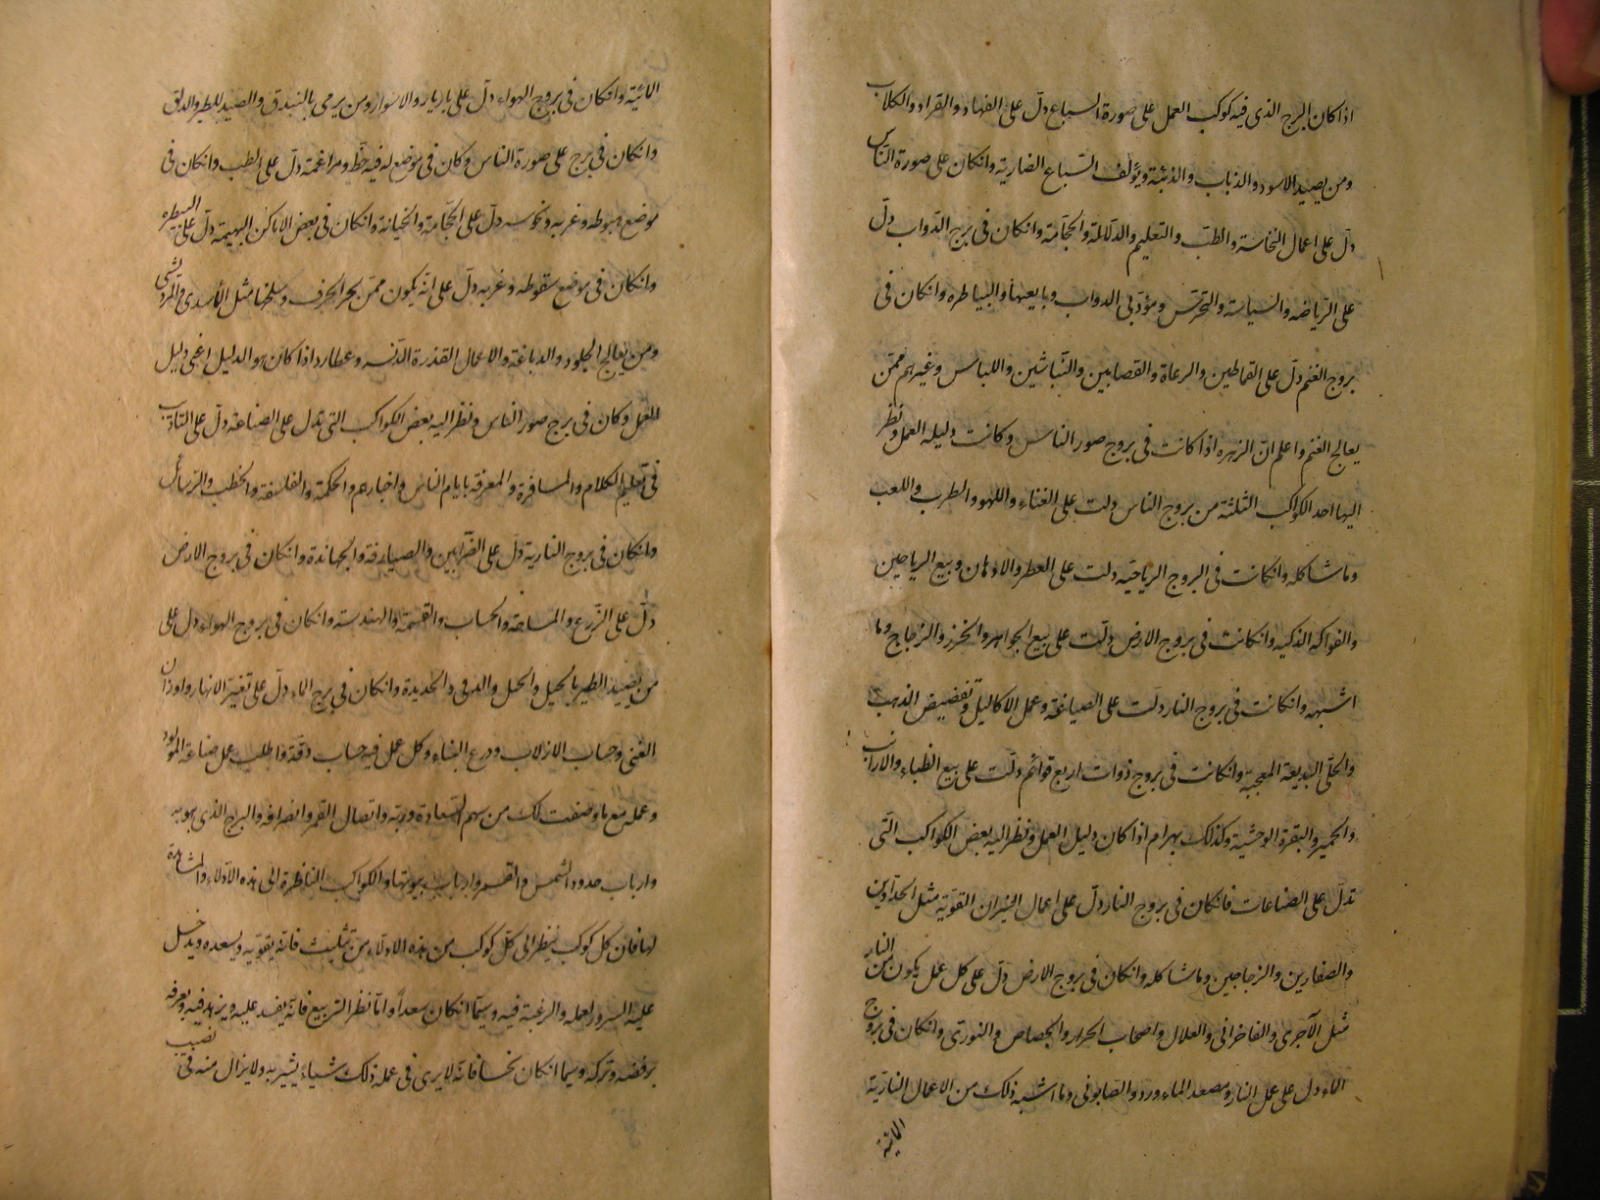 اذا كان البرج الذى فيه كوكب العمل على صورة السباع دلّ على الفهاد والقراد والكلاب
ومن يصيد الاسود والذباب والذئبة ويؤلف السباع الضارية وانكان على صورة الناس
دلّ على اعمال النخاسة والطبّ والتعليم والدلالة والحجامة وانكان فى برج الدواب دلّ
على الرياضه والسياسة ومؤدبى الدواب وبايعيها والبياطره وانكان فى
بروج الغنم دلّ على والرعاة والقصابين والنباشين واللباس وغيرهم ممّن
يعالج الغنم واعلم ان الزهره اذا كانت فى بروج صور الناس وكانت دليله العمل ونظر
اليها احد الكواكب الثلثة من بروج الناس دلت على الغناء واللهو والطرب واللعب
وما شاكله وانكانت فى البروج الرياحيّه دلت على العطر والادهان وبيع الرياحين
والفواكه الذكيه وانكانت فى بروج الارض دلّت على بيع الجواهر والخرز والزجاج وما
اشبهه وانكانت فى بروج النار دلت على الصياغة وعمل الاكاليل وتفضيض الذهب
والحلّى البديعة المعجبه وانكانت فى بروج ذوات اربع قوائم دلّت على بيع الظباء والارانب
والحمير والبقرة الوحشية وكذلك بهرام اذا كان دليل العمل ونظر اليه بعض الكواكب التى
تدلّ على الصناعات فانكان فى بروج النار دلّ على اعمال النيران القويّه مثل الحدادين
والصفارين والزجاجين وما شاكله وانكان فى بروج الارض دلّ على كل عمل يكون من النار
مثل الآجرى والفاخرانى والغلال واصحاب الجرار والجصاص والنورى وانكان فى بروج
الماء دل على عمل النار ومصعد الماء ورد والصابونى وما اشبه ذلك من الاعمال النارية
المائية
المائية وانكان فى بروج الهواء دلّ على بازيار والاسوار ومن يرمى بالبندق والصيد للطير والدلق
وانكان فى برج على صورة الناس وكان فى موضع له فيه حظّ ومزاعمة دلّ على الطب وانكان فى
موضع هبوطه وغربه ونحوسه دلّ على الحجامة والخيانة وانكان فى بعض الاماكن البهيمة دلّ على البيطره
وانكان فى موضع سقوطه وغربه دلّ على انه يكون ممّن الحرف مثل
ومن يعالج الجلود والدباغة والاعمال القذرة الدنسه وعطارد اذا كان هو الدليل اعنى دليل
العمل وكان فى برج صور الناس ونظر اليه بعض الكواكب التى تدل على الصناعه دلّ على التاديب
فى تعليم الكلام والمسافرة والمعرفة بايام الناس واخبارهم والحكمة والفلسفة والخطب والترسائل
وانكان فى بروج النارية دلّ على الضرّابين والصيارفة والجهابذة وانكان فى بروج الارض
دلّ على الزرع والمساحة والحساب والقسمة والهندسة وانكان فى بروج الهواء دل على
من يصيد الطير بالحيل والحبل والدبق والحديدة وانكان فى برج الماء دلّ على الانهار واوزان
القنى وحساب الازلاب وذرع البناء وكل عمل فيه حساب دقة فاطلب عمل صناعة المولود
وعمله مع ما وصفت لك من سهم السعادة وربّه واتصال القمر وانصرافه والبرج الذى هو به
وارباب حدود الشمس والقمر وارباب بيوتها والكواكب الناظرة الى هذه الادلاء والمشاهدة
لها فان كل كوكب ينظر الى كل كوكب من هذه الادلاء من تثليث فانه يقوّيه ويسعده ويدخل
عليه السرور لعمله والرغبة فيه وسيّما انكان سعداً وامّا نظر التربيع فانه يفسد عليه ويزهد فيه
برفضه وتركه وسيما انكان نحسا فانه لايرى فى عمله ذلك شيئا يسرّ به ولايزال منه فى نصب